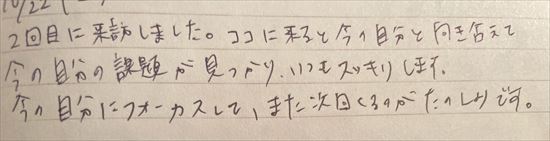 10/22 (
2回目に来訪しました。ココに来ると今の自分と向き合えて
今の自分の課題が見つかり、いつもスッキリします。
今の自分にフォーカスして、また次回くるのがたのしみです。